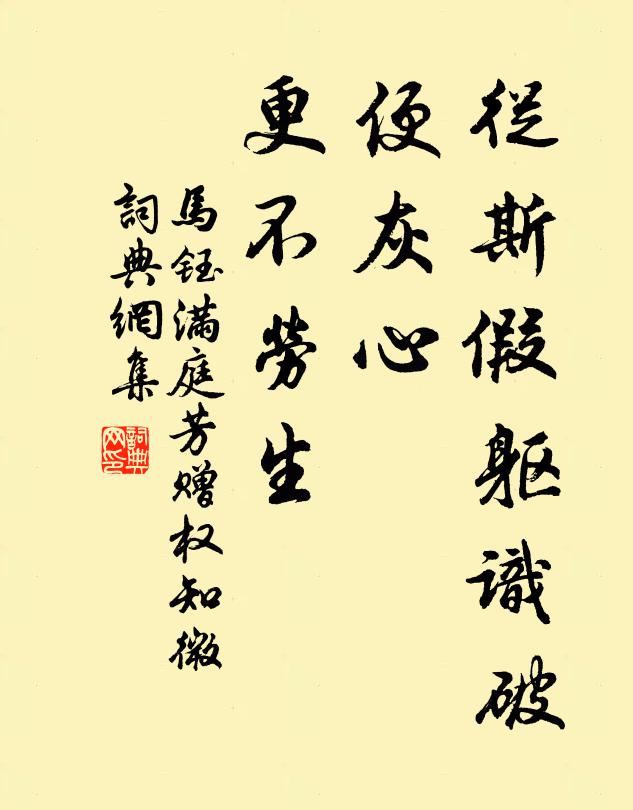 從斯假軀識破
便灰心
更不勞生
馬鈺滿庭芳赠权知微
詞典網集
詞典网印